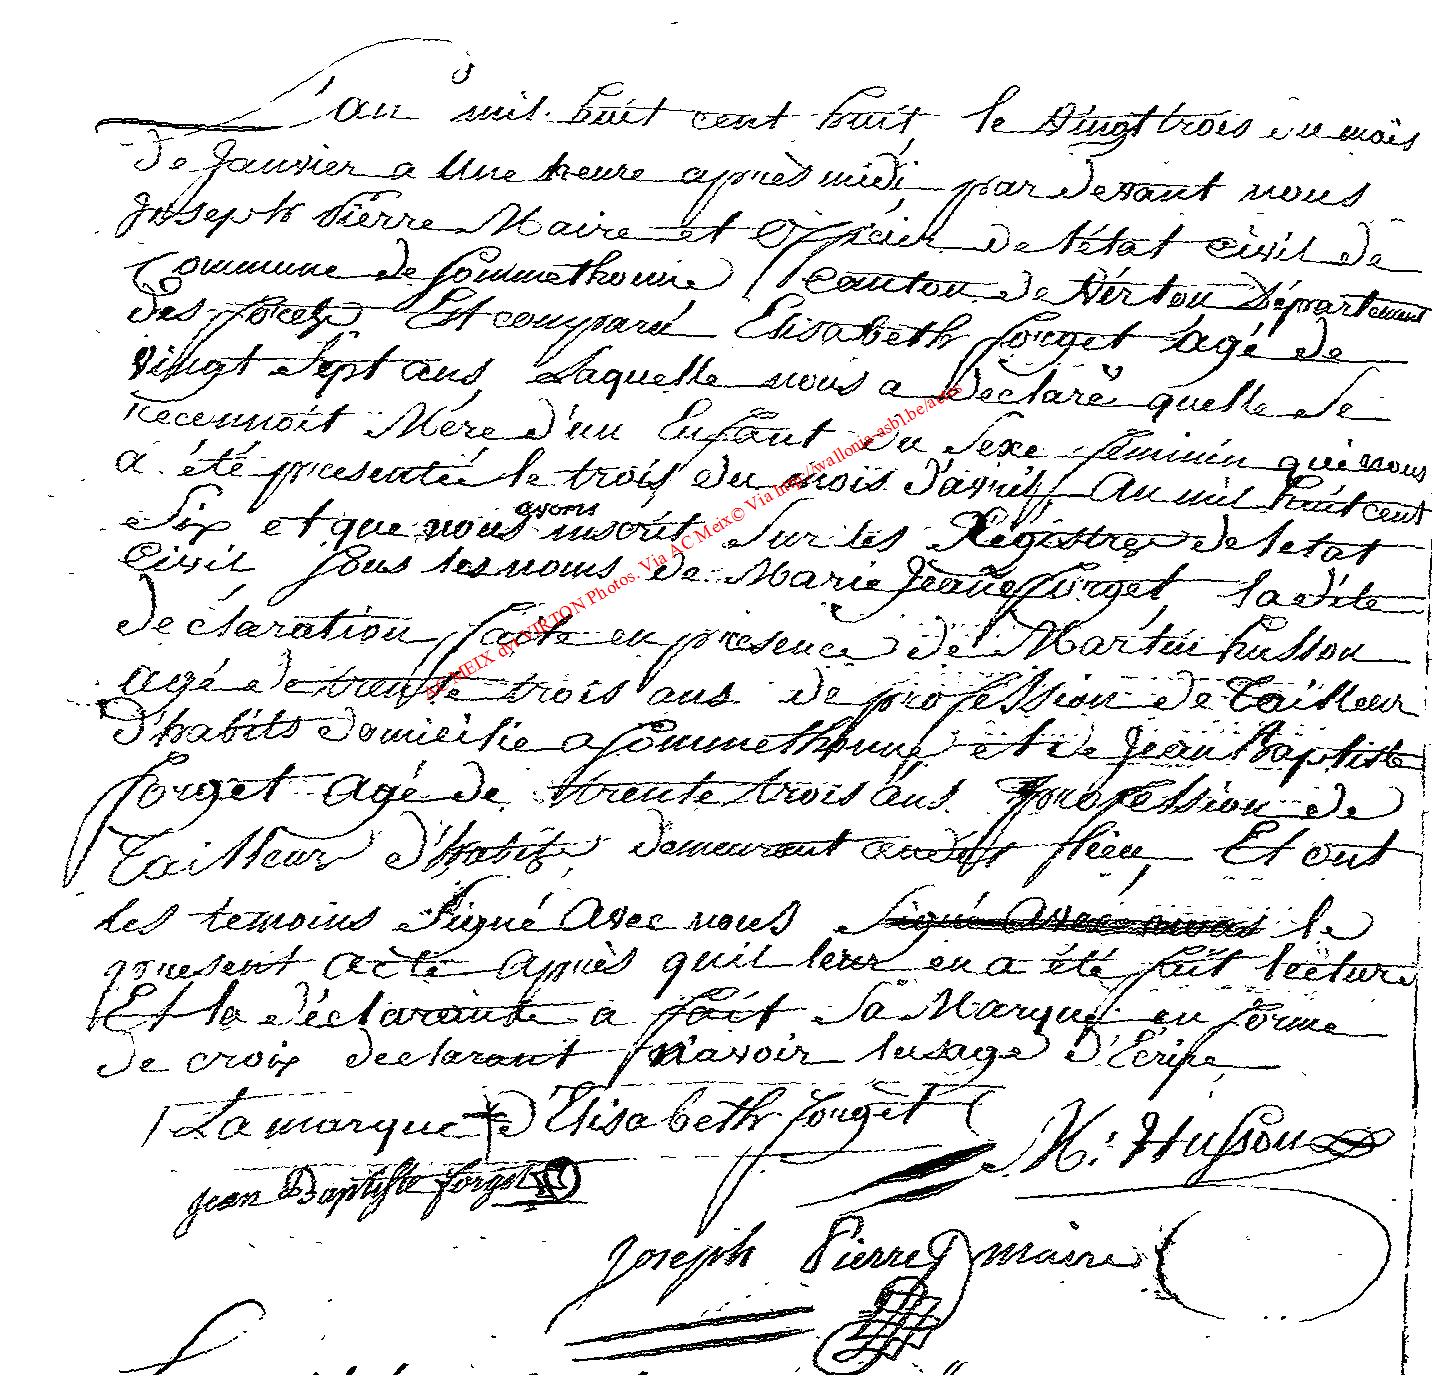 L'an mil huit cent huit, le vingt trois du mois
de Janvier a Une heure après midi, par devant nous
Joseph Pierre Maire et Officier de l'état civil de
Commune de Sommethonne Canton de Virton Département
des forets, Est comparu Elisabeth forget agé de
vingt Sept ans, Laquelle nous a declaré quelle Se
Reconnoit Mère d'un Enfant du Sexe féminin qui nous
a été presentée le trois du mois d'avril, An mil huit cent
Six et que nous avons inscrit Sur les Régistres de letat
Civil Sous les noms de Marie Jeanne forget, la dite
déclaration faite en presence de Martin husson
agé de trente trois ans de profession de Tailleur
d'habits domicilie a Sommethonne et de Jean Baptiste
forget agé de trente trois ans Profession de
Tailleur d'habits demeurant audit lieu, Et ont
les temoins Signé avec nous Signé avec nous le
present acte après quil leur en a été fait lecture
Et la déclarante a fait Sa Marque en forme
de croix declarant n'avoir lusage d'Ecrire
La marque + d'Elisabeth forget
M: Husson
Jean Baptiste forget
Joseph Pierre maire
AC MEIX dvt VIRTON Photos. Via AC Meix© Via http://wallonia-asbl.be/actes